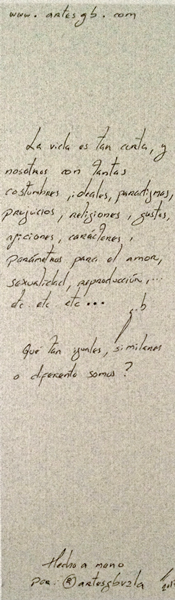 www.artesgb.com
La vida es tan corta, y
nosotros con tantas
costumbres, ideales, paradigmas,
prejuicios, religiones, gustos,
aficiones, carácteres,
parámetros para el amor,
sexualidad, reproducción,...
etc etc etc...
g.b
Que tan iguales, similares
o diferente somos?
Hecho a mano
por: @artesgbvzla